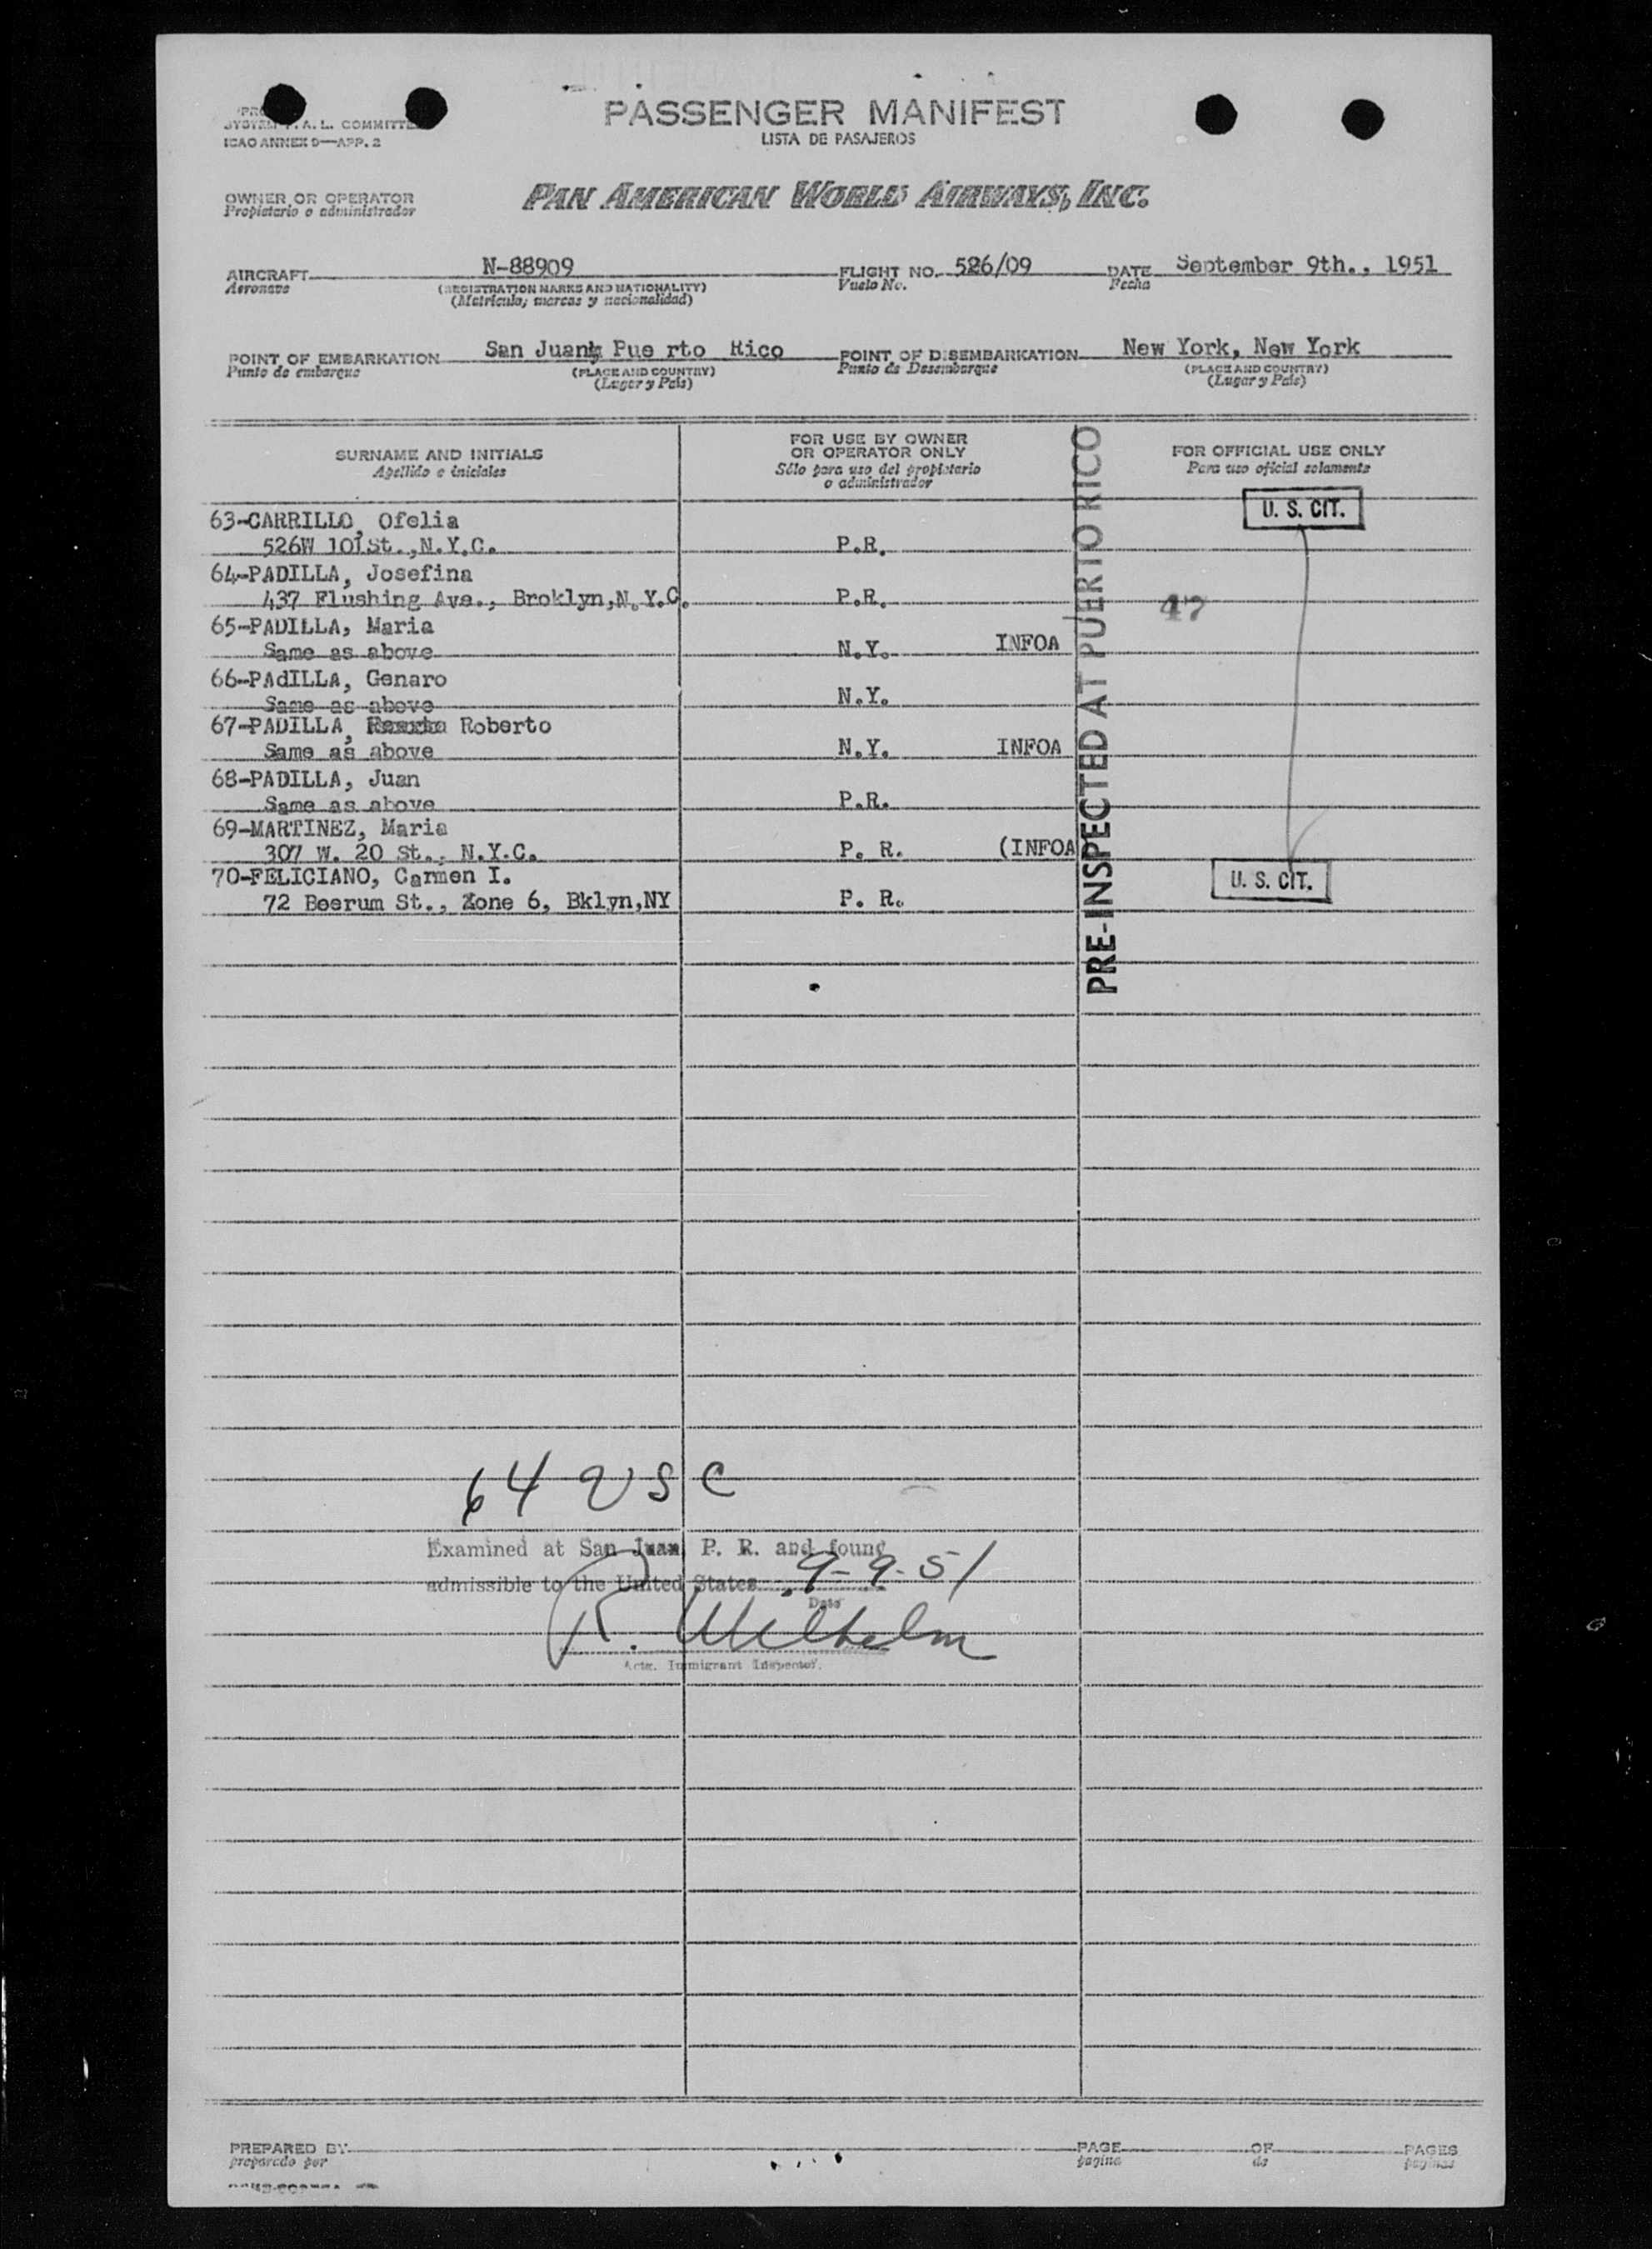 PASSENGER MANIFEST
LISTA DE PASAJEROS
A. L. COMMITTE
ICAO ANNEX 9—APP. 2
OWNER OR OPERATOR
Propietario o administrador
PAN AMERICAN WORLD AIRWAYS, INC.
AIRCRAFT N-88909 FLIGHT NO. 526/09 DATE September 9th., 1951
Aeronave (REGISTRATION MARKS AND NATIONALITY) Vuelo No. Fecha
(Matricula; marcas y nacionalidad)
POINT OF EMBARKATION San Juan, Pue rto Rico POINT OF DISEMBARKATION New York, New York
Punto de embarque (PLACE AND COUNTRY) Punto de Desembarque (PLACE AND COUNTRY)
(Lugar y País) (Lugar y País)
SURNAME AND INITIALS
Apellido e iniciales
FOR USE BY OWNER
OR OPERATOR ONLY
Sólo para uso del propietario
o administrador
FOR OFFICIAL USE ONLY
Para uso oficial solamente
PRE-INSPECTED AT PUERTO RICO
U. S. CIT.
63-CARRILLO, Ofelia
526W 101St.,N.Y.C. P.R.
64-PADILLA, Josefina
437 Flushing Ave., Broklyn,N.Y.C. P.R. 47
65-PADILLA, Maria
Same as above N.Y. INFOA
66-PAdILLA, Genaro
Same as above N.Y.
67-PADILLA, Roberto
Same as above N.Y. INFOA
68-PADILLA, Juan
Same as above P.R.
69-MARTINEZ, Maria
307 W. 20 St., N.Y.C. P. R. (INFOA
70-FELICIANO, Carmen I.
72 Boerum St., Zone 6, Bklyn,NY P. R.
U. S. CIT.
64 USC
Examined at San Juan, P. R. and found
admissible to the United States 9-9-51
Date
R. Wilhelm
Actg. Immigrant Inspector.
PREPARED BY PAGE OF PAGES
preparado por pagina de paginas